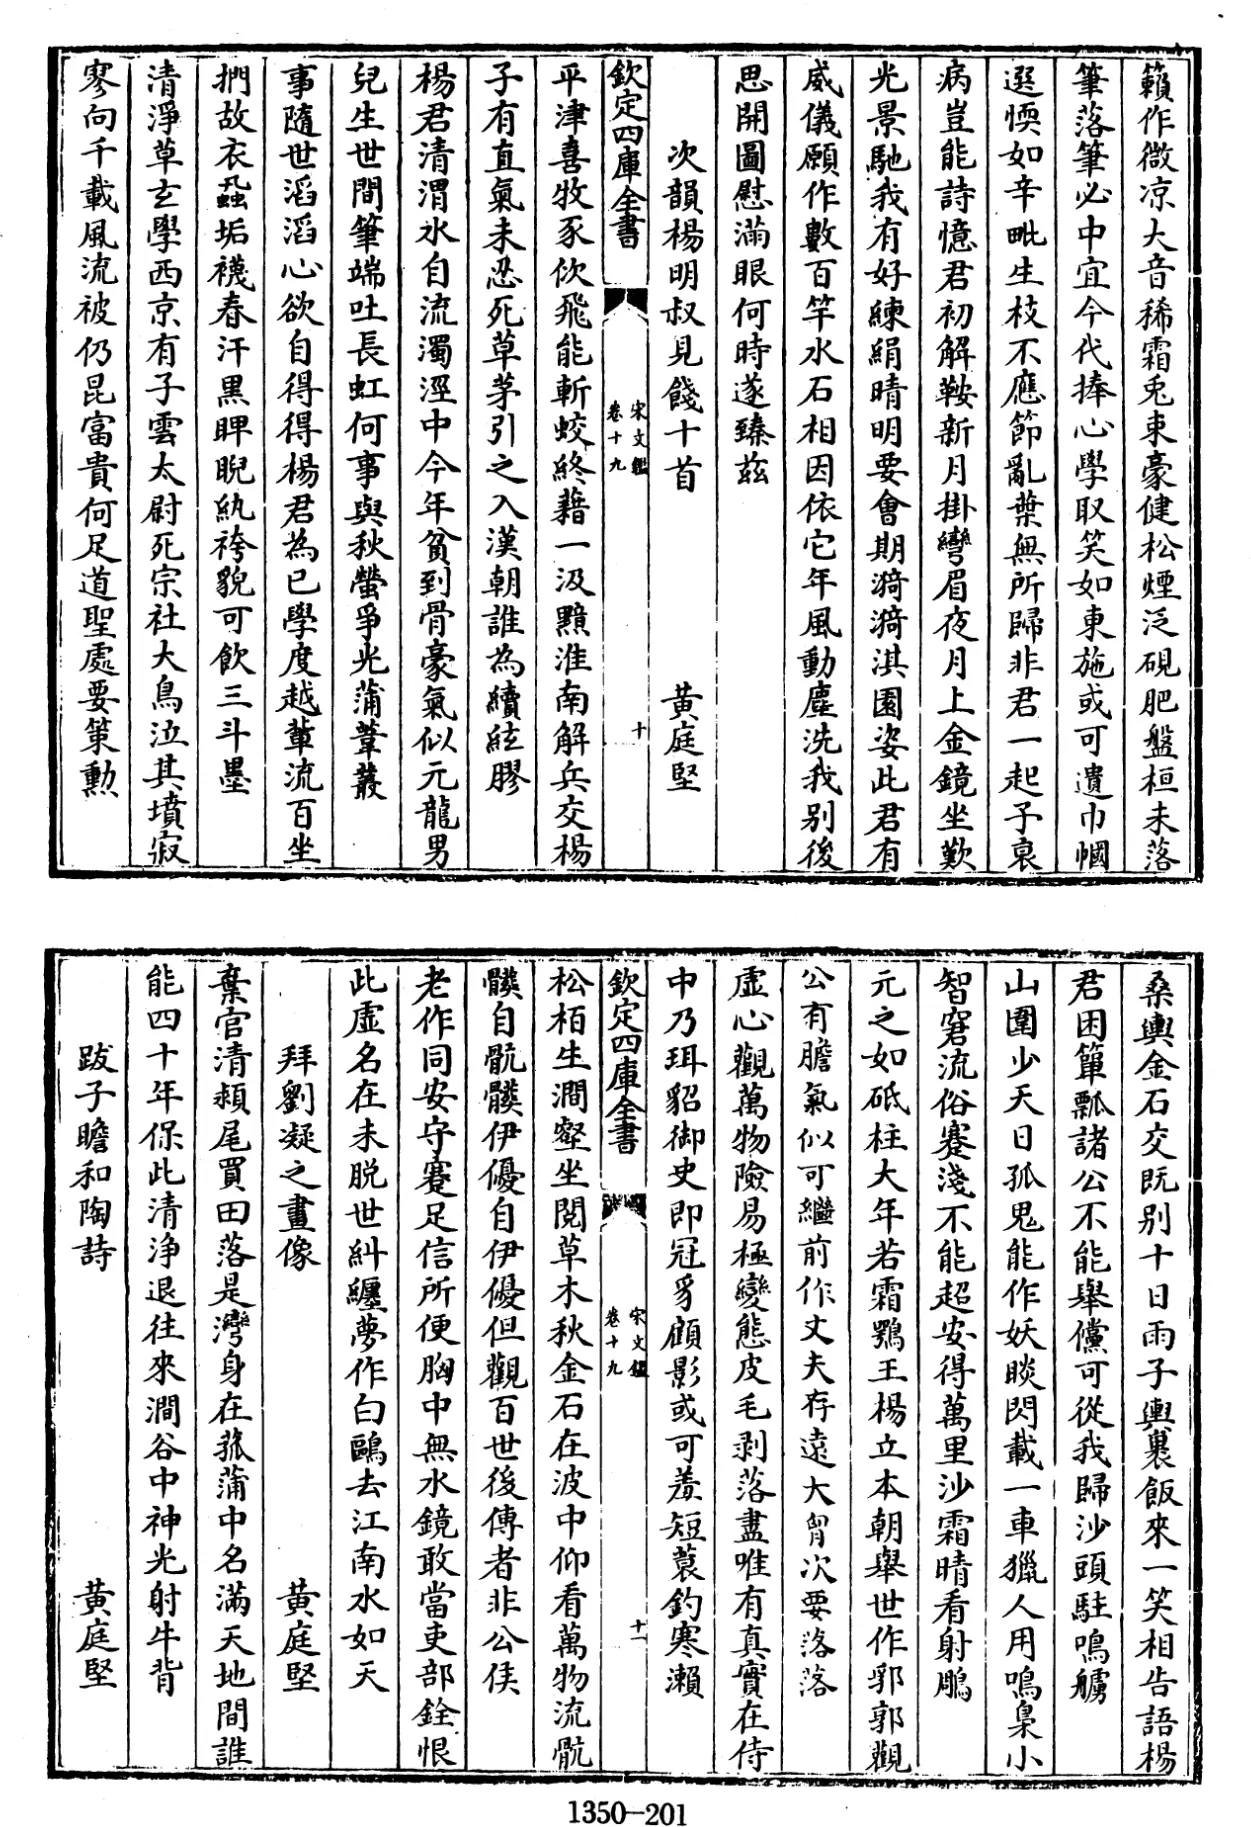 籟作微凉大音稀霜兎束豪健松煙泛硯肥盤桓未落
筆落筆必中宜今代捧心學取笑如東施或可遺巾幗
選愞如辛毗生枝不應節亂葉無所歸非君一起予衰
病豈能詩憶君初解鞍新月掛彎眉夜月上金鏡坐歎
光景馳我有好練絹晴明要會期漪漪淇園姿此君有
威儀願作數百竿水石相因依它年風動塵洗我别後
思開圖慰滿眼何時遂臻茲
次韻楊明叔見餞十首 黄庭堅
欽定四庫全書 宋文鑑 卷十九 十
平津善牧豕佽飛能斬蛟終藉一汲黯淮南解兵交楊
子有直氣未忍死草茅引之入漢朝誰為續絃膠
楊君清渭水自流濁涇中今年貧到骨豪氣似元龍男
兒生世間筆端吐長虹何事與秋螢爭光蒲葦叢
事隨世滔滔心欲自得得楊君為已學度越輩流百坐
捫故衣蝨垢襪春汗黑睥睨紈袴貌可飲三斗墨
清淨草玄學西京有子雲太尉死宗社大鳥泣其墳寂
寥向千載風流被仍昆富貴何足道聖處要策勲
桑輿金石交既别十日雨子輿裹飯來一笑相告語楊
君困簞瓢諸公不能舉儻可從我歸沙頭駐鳴艣
山圍少天日孤鬼能作妖睒閃載一車獵人用鳴梟小
智窘流俗蹇淺不能超安得萬里沙霜晴看射鵰
元之如砥柱大年若霜鶚王楊立本朝舉世作郛郭觀
公有膽氣似可繼前作丈夫存遠大胷次要落落
虛心觀萬物險易極變態皮毛剥落盡唯有真實在侍
中乃珥貂御史即冠豸顧影或可羞短蓑釣寒瀨
欽定四庫全書 宋文鑑 卷十九 十一
松栢生澗壑坐閱草木秋金石在波中仰看萬物流骯
髒自骯髒伊優自伊優但觀百世後傳者非公侯
老作同安守蹇足信所便胸中無水鏡敢當吏部銓恨
此虛名在未脱世糾纒夢作白鷗去江南水如天
拜劉凝之畫像 黄庭堅
棄官清潁尾買田落是灣身在菰蒲中名滿天地間誰
能四十年保此清浄退往來澗谷中神光射牛背
跋子瞻和陶詩 黄庭堅
1350—201